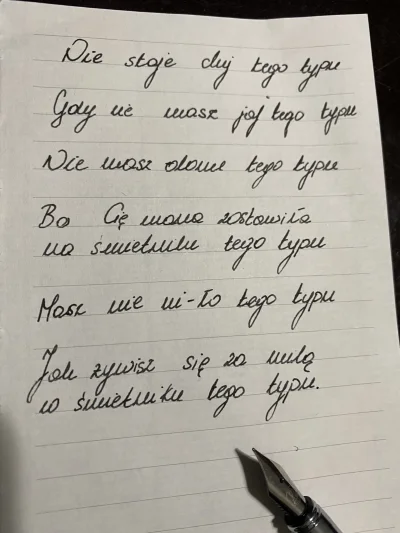 Nie staje chuj tego typu
Gdy nie masz jaj tego typu
Nie masz domu tego typu
Bo Cię mama zostawiła
na śmietniku tego typu
Masz nie mi-ło tego typu
Jak żywisz się za
w śmietniku tego typu.